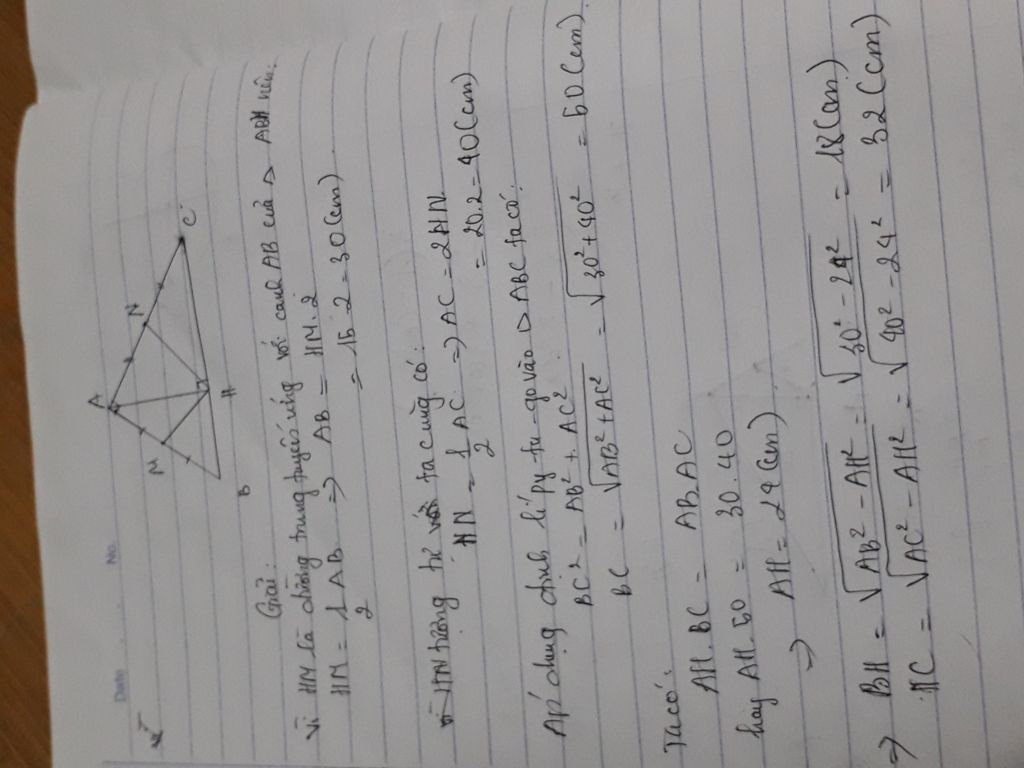 Date No.
A
M
N
B
H
C
Giải:
Vì HM là đường trung tuyến ứng với cạnh AB của △ ABH nên:
HM = 1/2 AB => AB = HM. 2
= 15. 2 = 30 (cm)
HN tương tự ta cũng có:
HN = 1/2 AC => AC = 2HN
= 20. 2 = 40 (cm)
Áp dụng định lí py-ta-go vào △ ABC ta có:
BC² = AB² + AC²
BC = √AB² + AC² = √30² + 40² = 50 (cm)
Ta có:
AH. BC = AB. AC
hay AH. 50 = 30. 40
=> AH = 24 (cm)
=> BH = √AB² - AH² = √30² - 24² = 18 (cm)
HC = √AC² - AH² = √40² - 24² = 32 (cm)